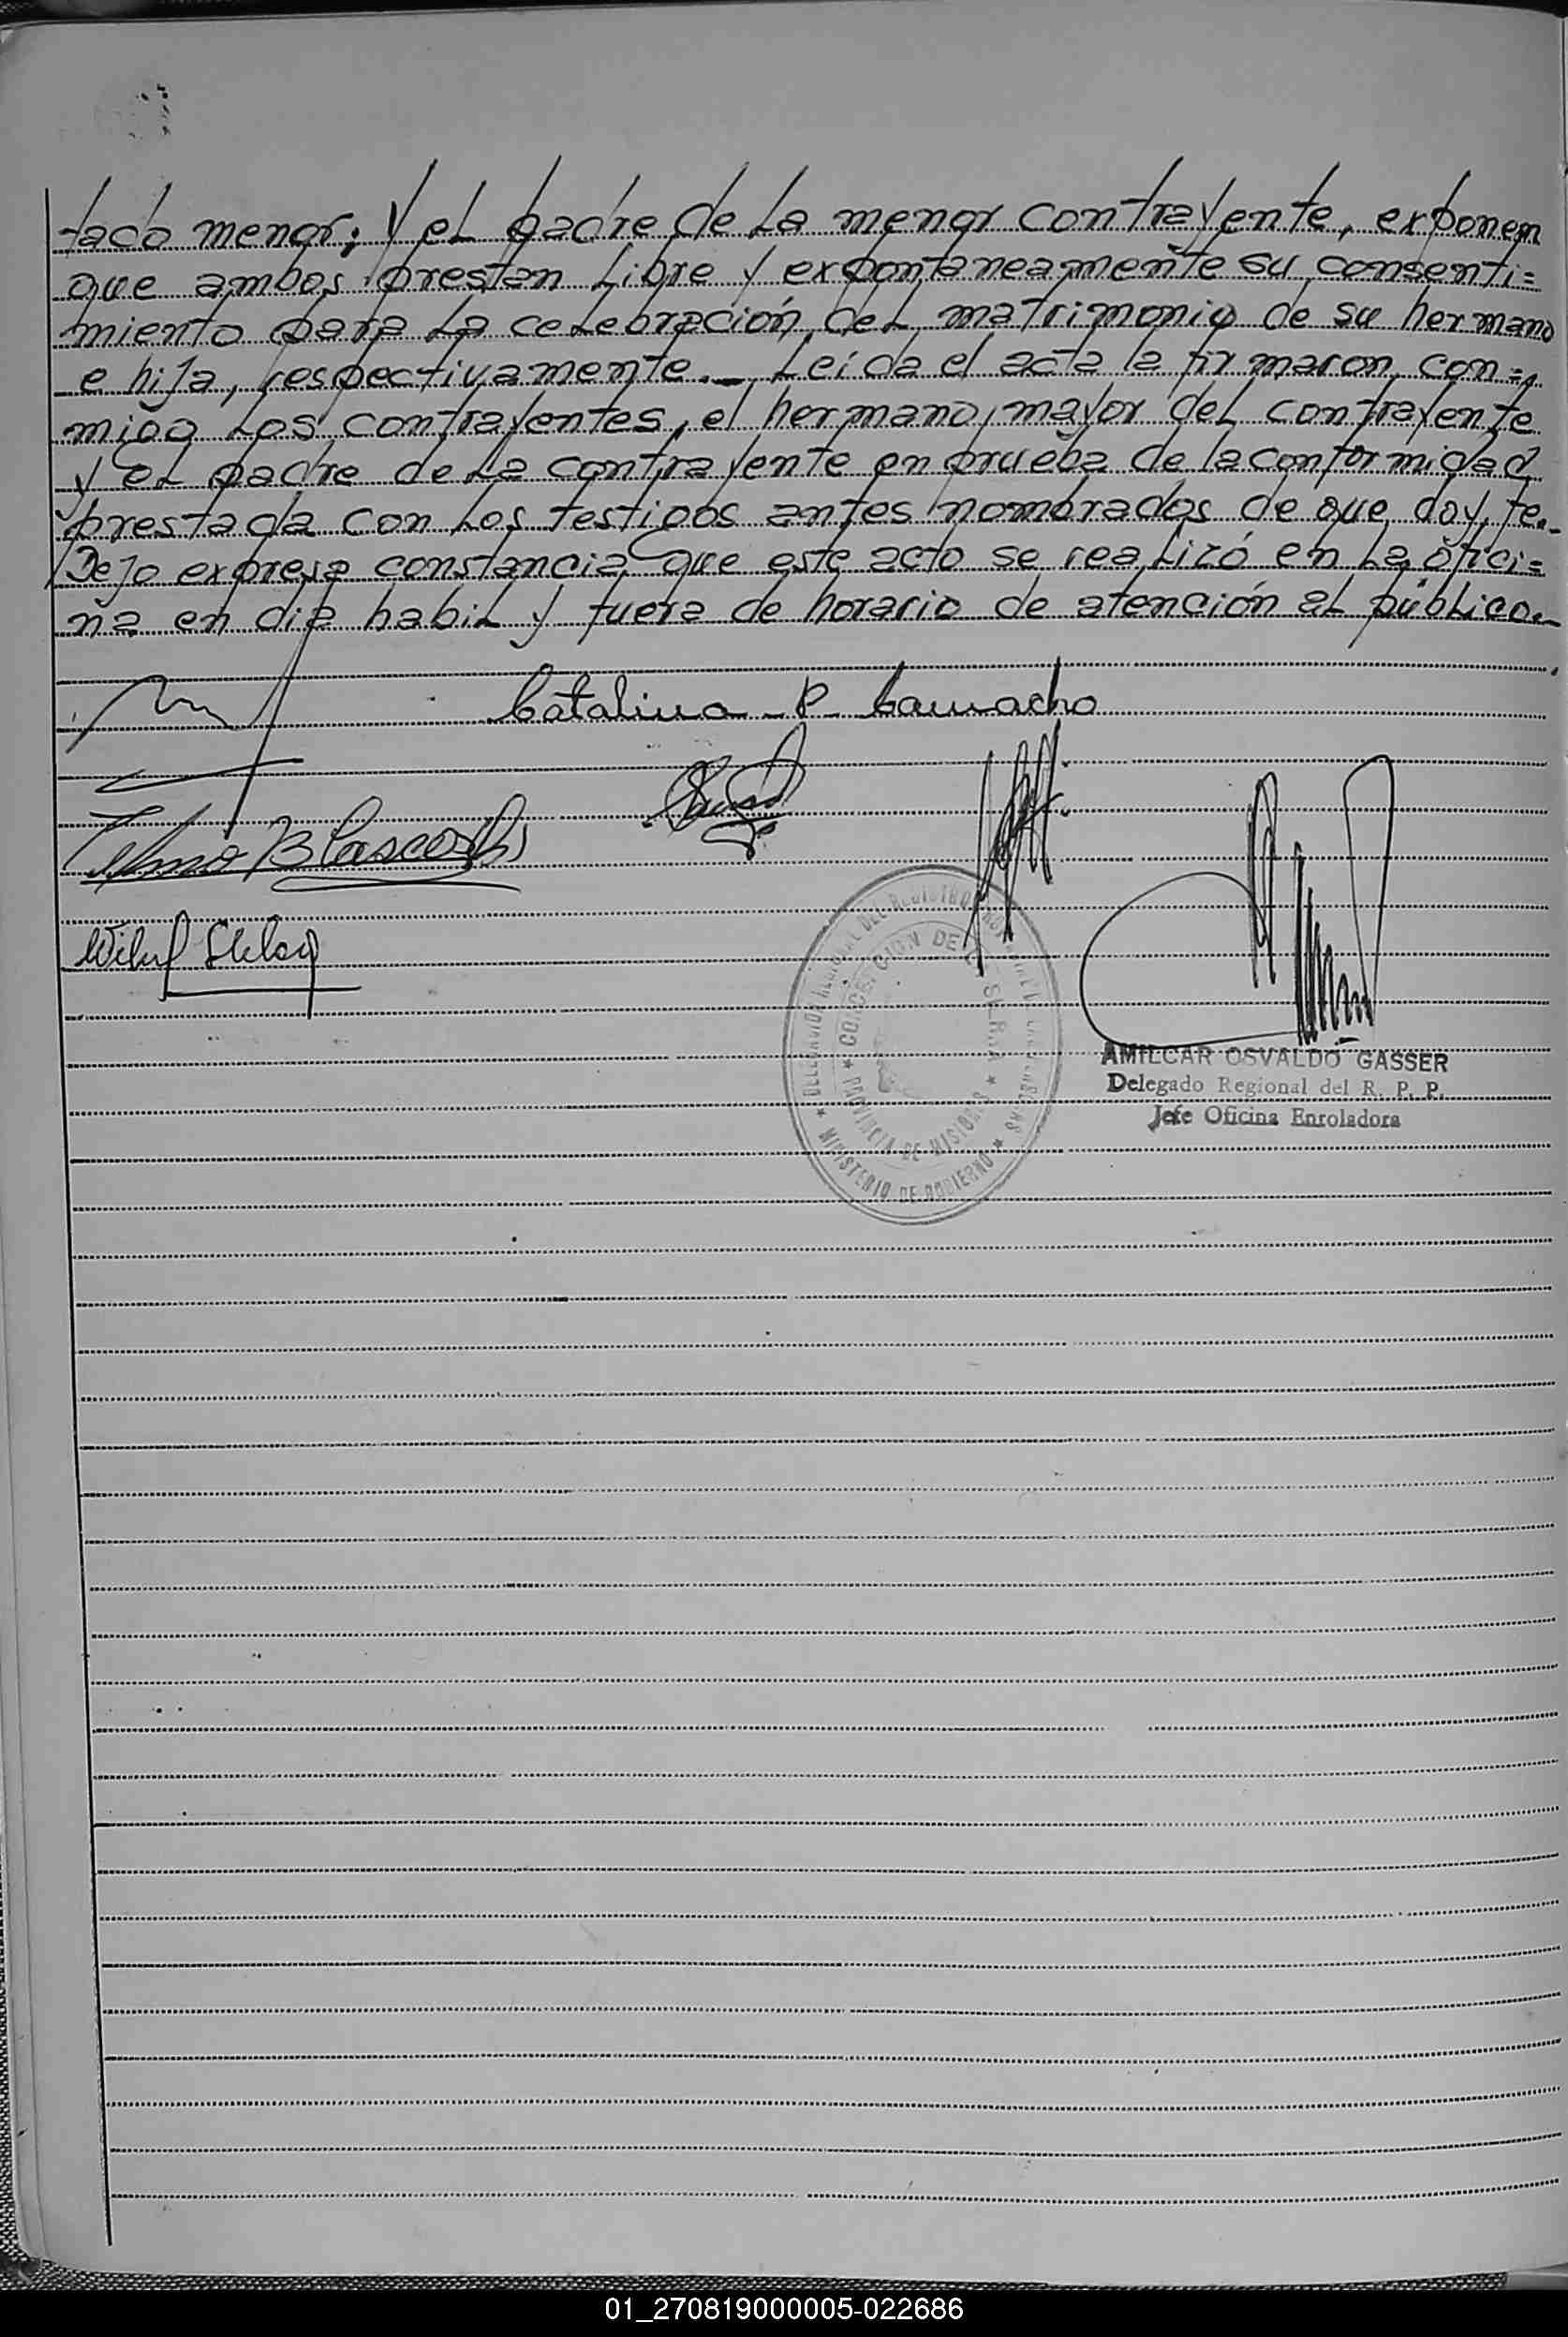 tado menor; y el padre de la menor contrayente, exponen
que ambos prestan libre y expontaneamente su consenti=
miento para la celebración del matrimonio de su hermano
e hija, respectivamente._ Leída el acta la firmaron con=
migo los contrayentes, el hermano mayor del contrayente
y el padre de la contrayente en prueba de la conformidad
prestada con los testigos antes nombrados de que doy fe._
Dejo expresa constancia que este acto se realizó en la ofici=
na en dia habil y fuera de horario de atención al público._
Catalina P. Camacho
DELEGACION REGIONAL DEL REGISTRO
CONCEPCION DE LA SIERRA
PROVINCIA DE MISIONES
MINISTERIO DE GOBIERNO
AMILCAR OSVALDO GASSER
Delegado Regional del R. P. P.
Jefe Oficina Enroladora
01_270819000005-022686